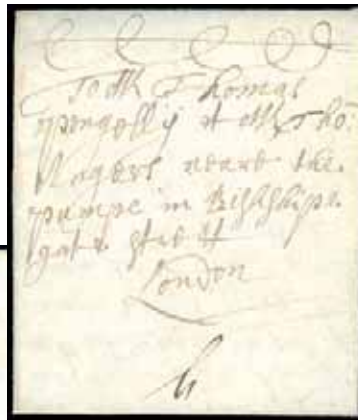 To Mr Thomas
pengelly at Mr Tho:
Rogers neare the
pumpe in Bishhips
gate street
London